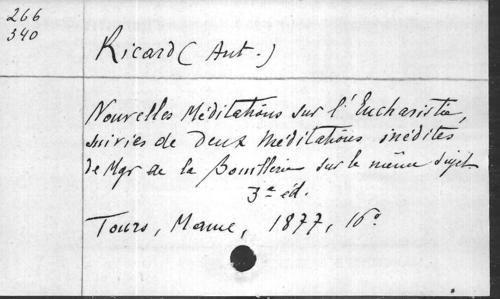 266
340
Ricard (Ant.)
Nouvelles Méditations sur l'Eucharistie,
suivies de Deux Méditations inédites
de Mgr de la Bouillerie sur le même sujet
3e éd.
Tours, Mame, 1877, 16o.